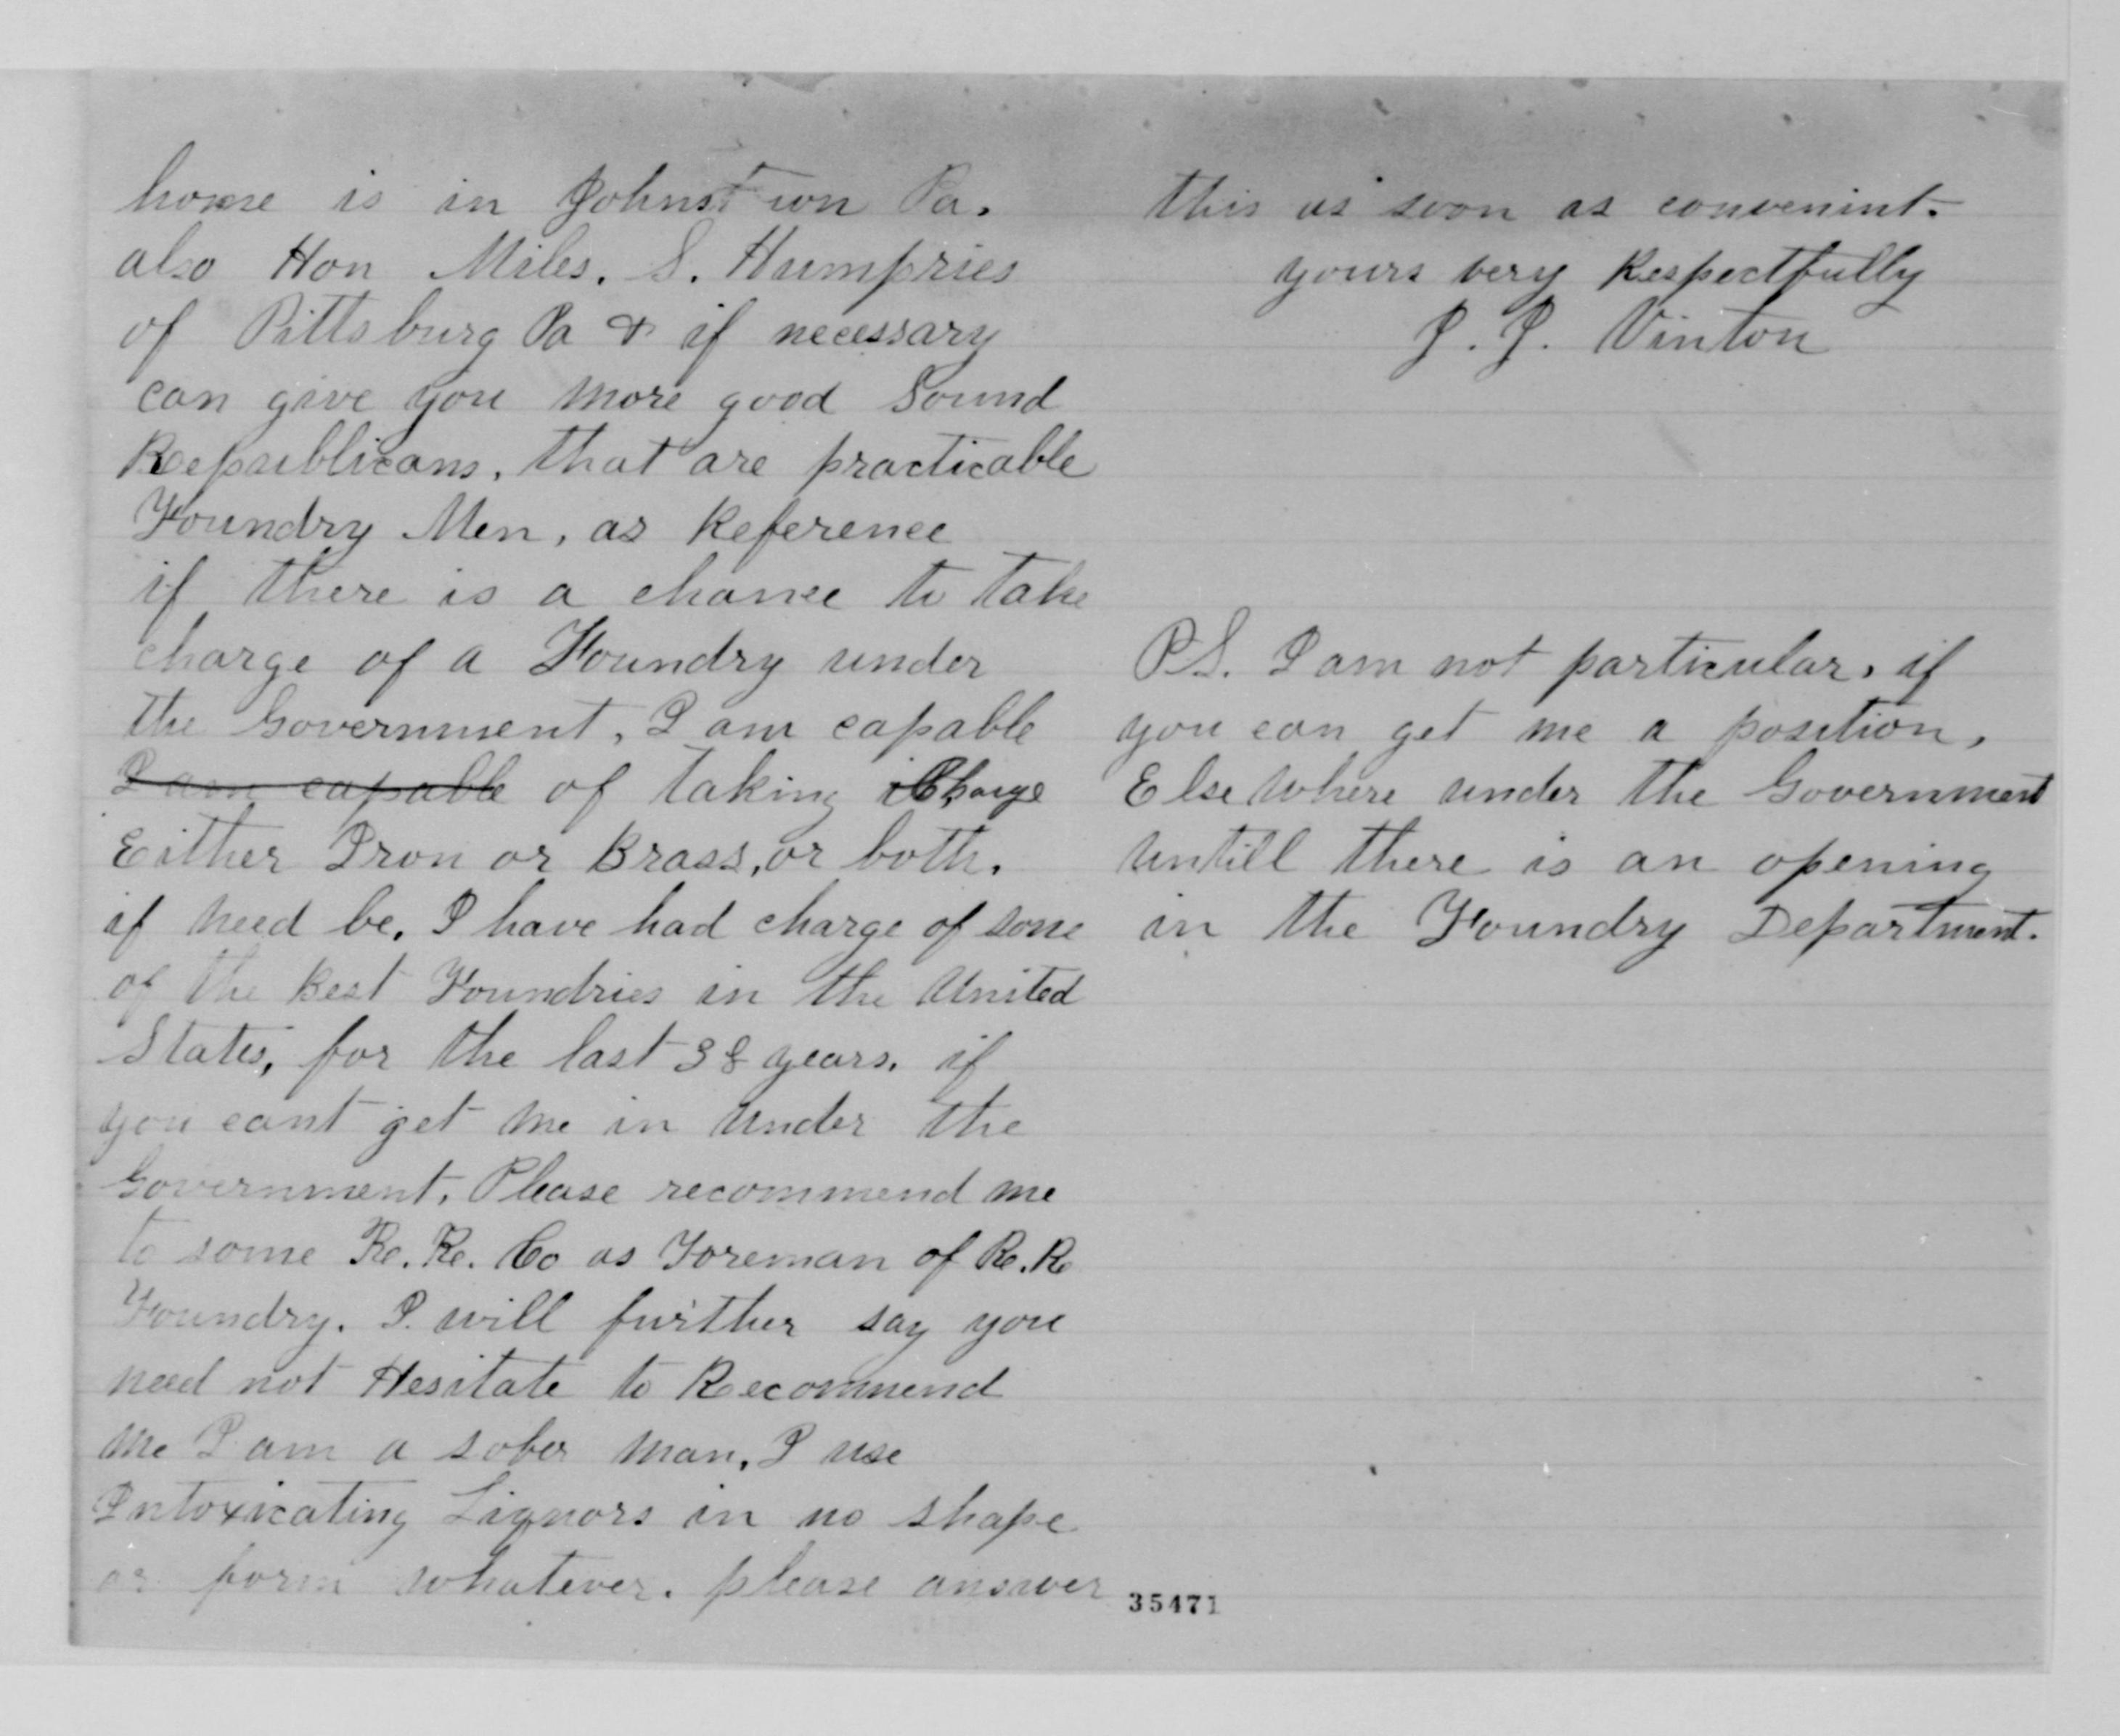 home is in Johnstown Pa.
also Hon Miles. S. Humpries
of Pittsburg Pa & if necessary
can give you more good Sound
Republicans, that are practicable
Foundry Men, as Reference
if there is a chance to take
charge of a Foundry under
the Government, I am capable
I am capable of taking Charge
Either Iron or Brass, or both.
if need be. I have had charge of some
of the Best Foundries in the United
States, for the last 38 years. if
you cant get me in under the
Government. Please recommend me
to some R. R. Co as Foreman of R. R
Foundry. I will further say you
need not Hesitate to Recommend
me I am a sober man. I use
Intoxicating Liquors in no shape
or form whatever. please answer
this as soon as convenint.
yours very Respectfully
J. J. Vinton
PS. I am not particular, if
you can get me a position,
Else where under the Government
untill there is an opening
in the Foundry Department.
35471